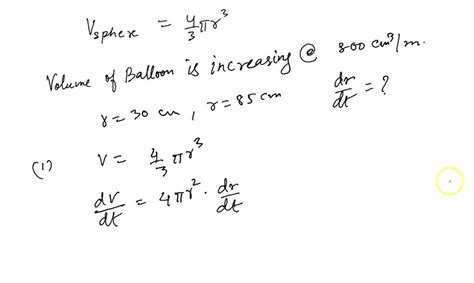 V_sphere = 4/3 πr³
Volume of Balloon is increasing @ 800 cm³/m.
r = 30 cm, r = 85 cm dr/dt = ?
(1) V = 4/3 πr³
dV/dt = 4πr² · dr/dt